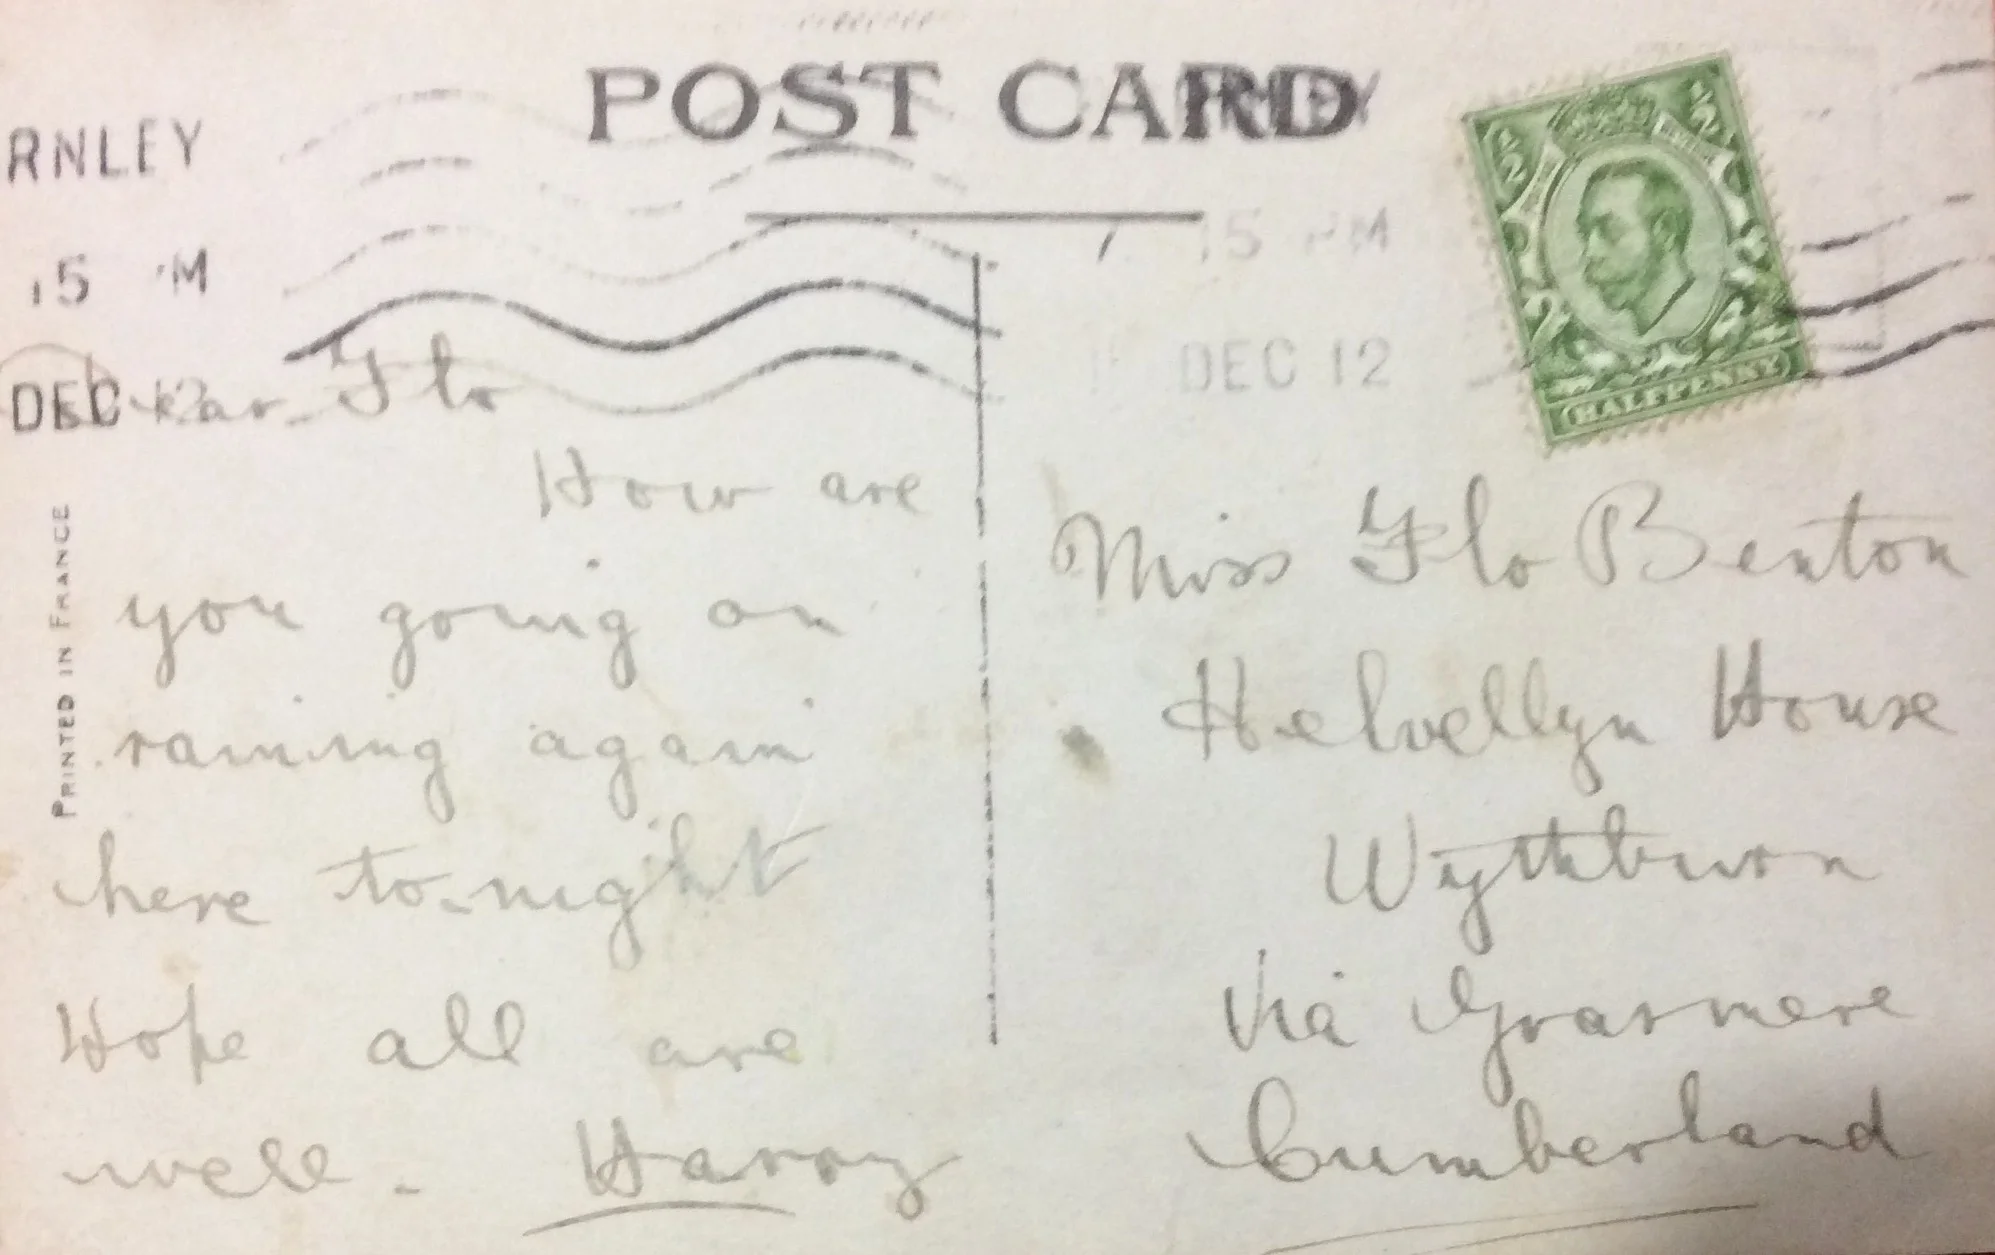 POST CARD
RNLEY
15 PM
DEC 12
15 PM
DEC 12
HALFPENNY
PRINTED IN FRANCE
Dear Flo
How are
you going on
raining again
here to-night
Hope all are
well. Harry
Miss Flo Benton
Helvellyn House
Wythburn
Via Grasmere
Cumberland